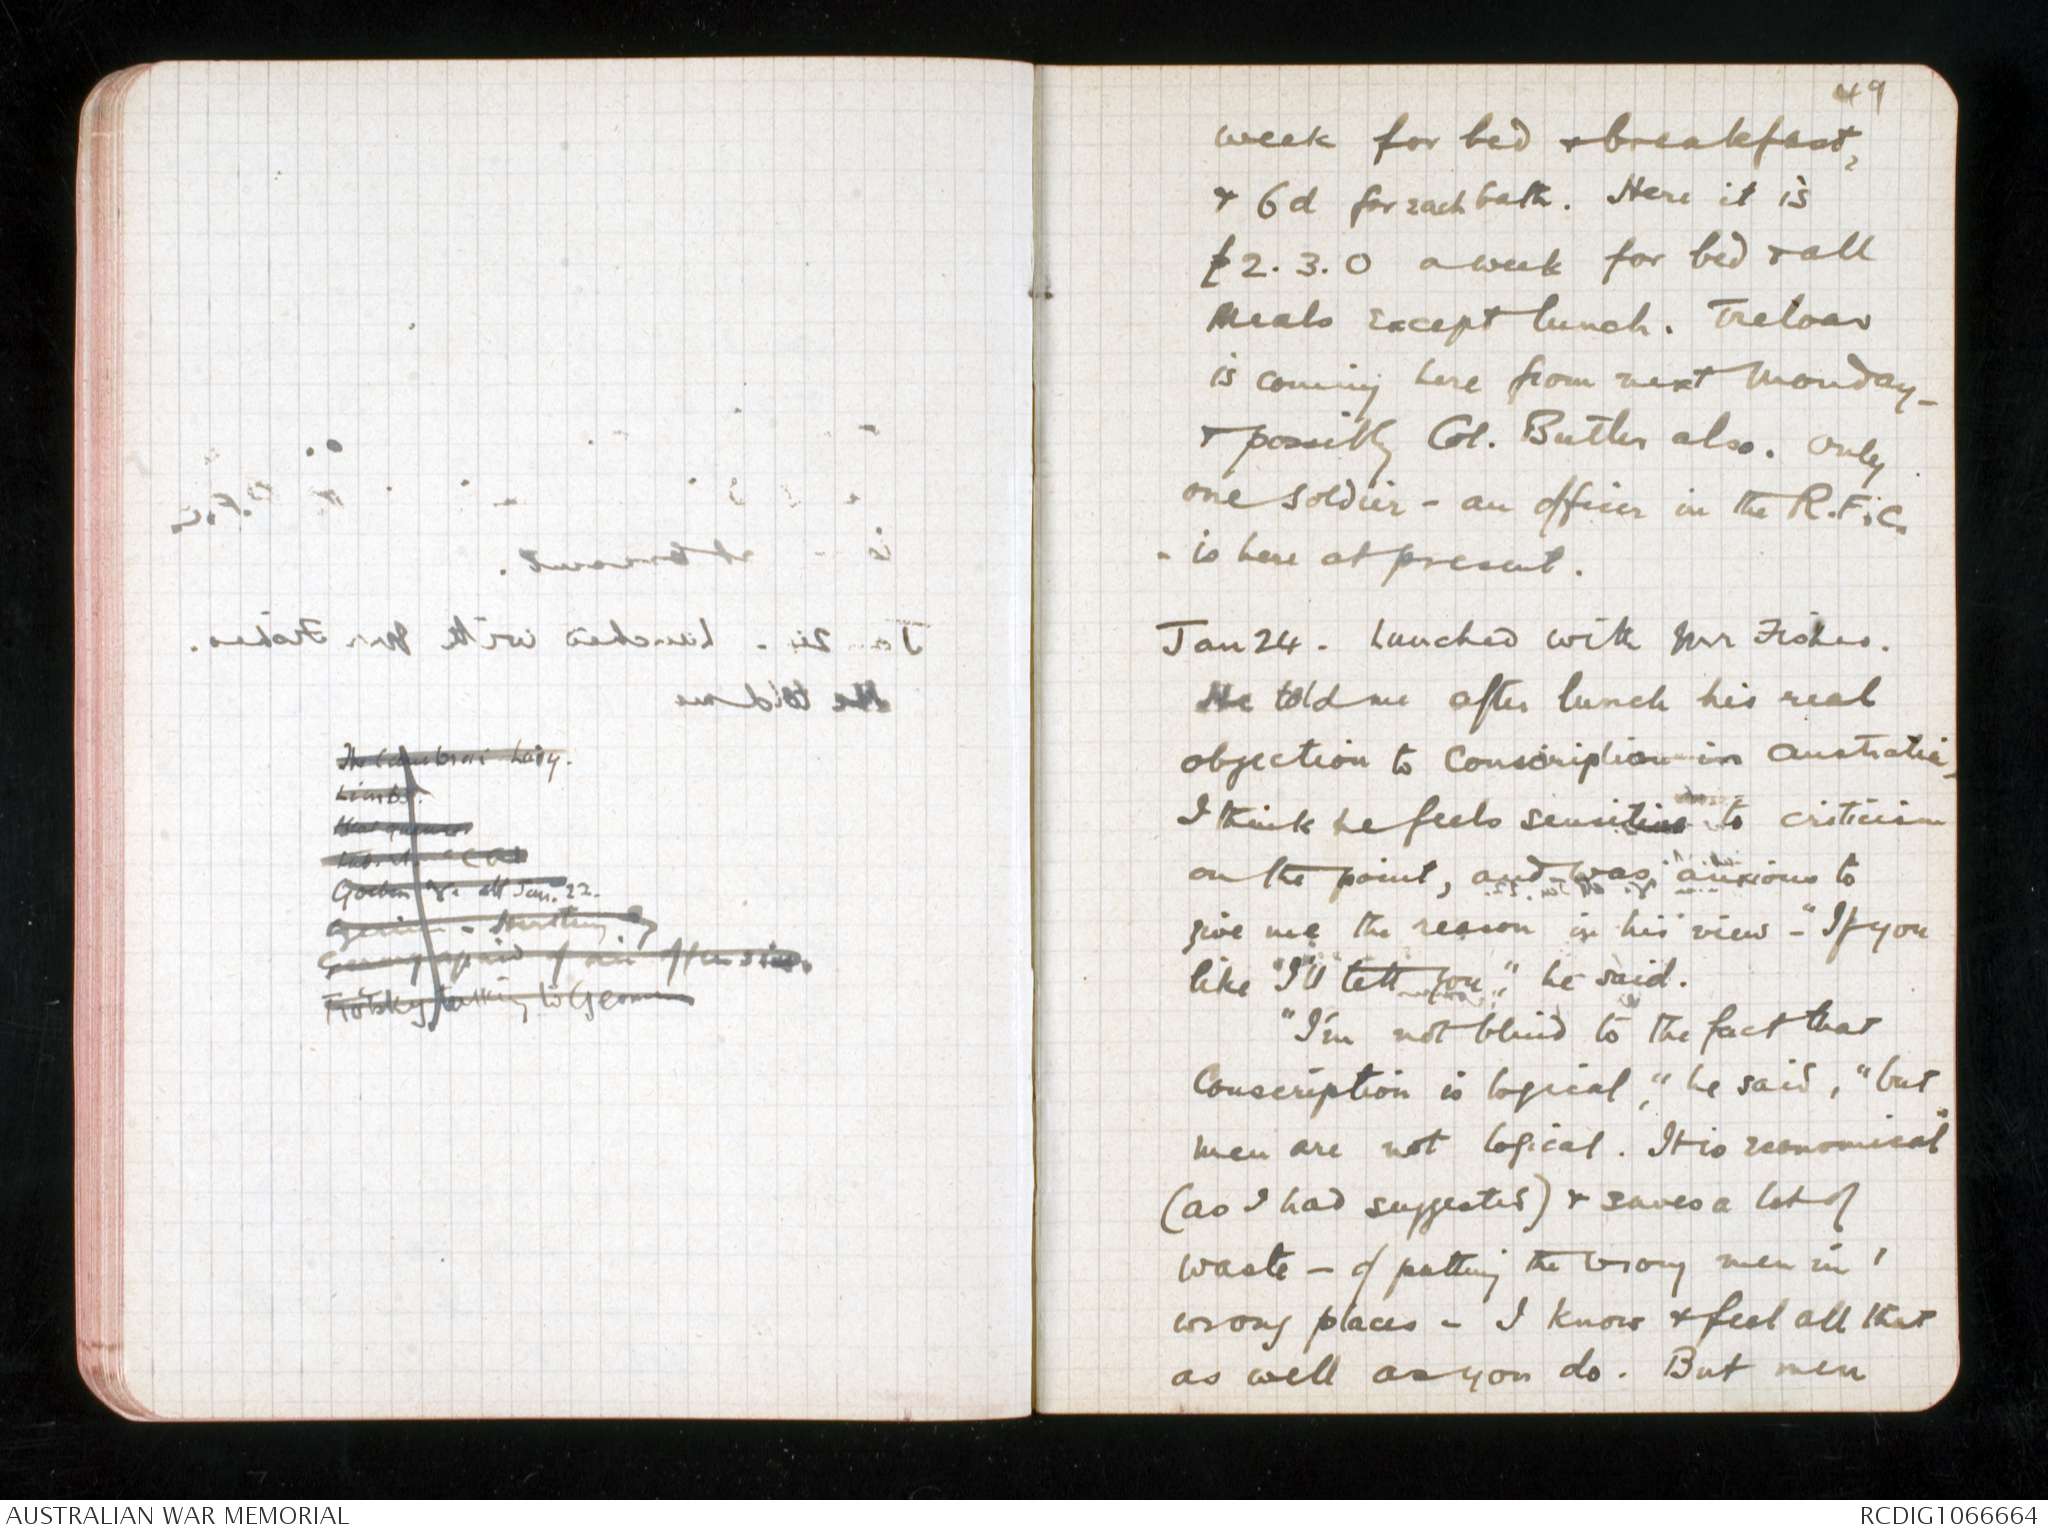 The Cambrai Lady.
Limbs.
Goeben &c. all Jan. 22.
Trotsky talking to German
49
week for bed & breakfast,
& 6d for each bath. Here it is
£2.3.0 a week for bed & all
meals except lunch. Treloar
is coming here from next Monday -
& possibly Col. Butler also. Only
one soldier - an officer in the R.F.C.
- is here at present.
Jan 24. Lunched with Mr Fisher.
He told me after lunch his real
objection to Conscription in Australia.
I think he feels sensitive to criticism
on the point, and was anxious to
give me the reason in his view - "If you
like I'll tell you," he said.
"I'm not blind to the fact that
Conscription is logical," he said, "but
men are not logical. It is economical"
(as I had suggested) & saves a lot of
waste - of putting the wrong men in
wrong places - I know & feel all that
as well as you do. But men
AUSTRALIAN WAR MEMORIAL
RCDIG1066664